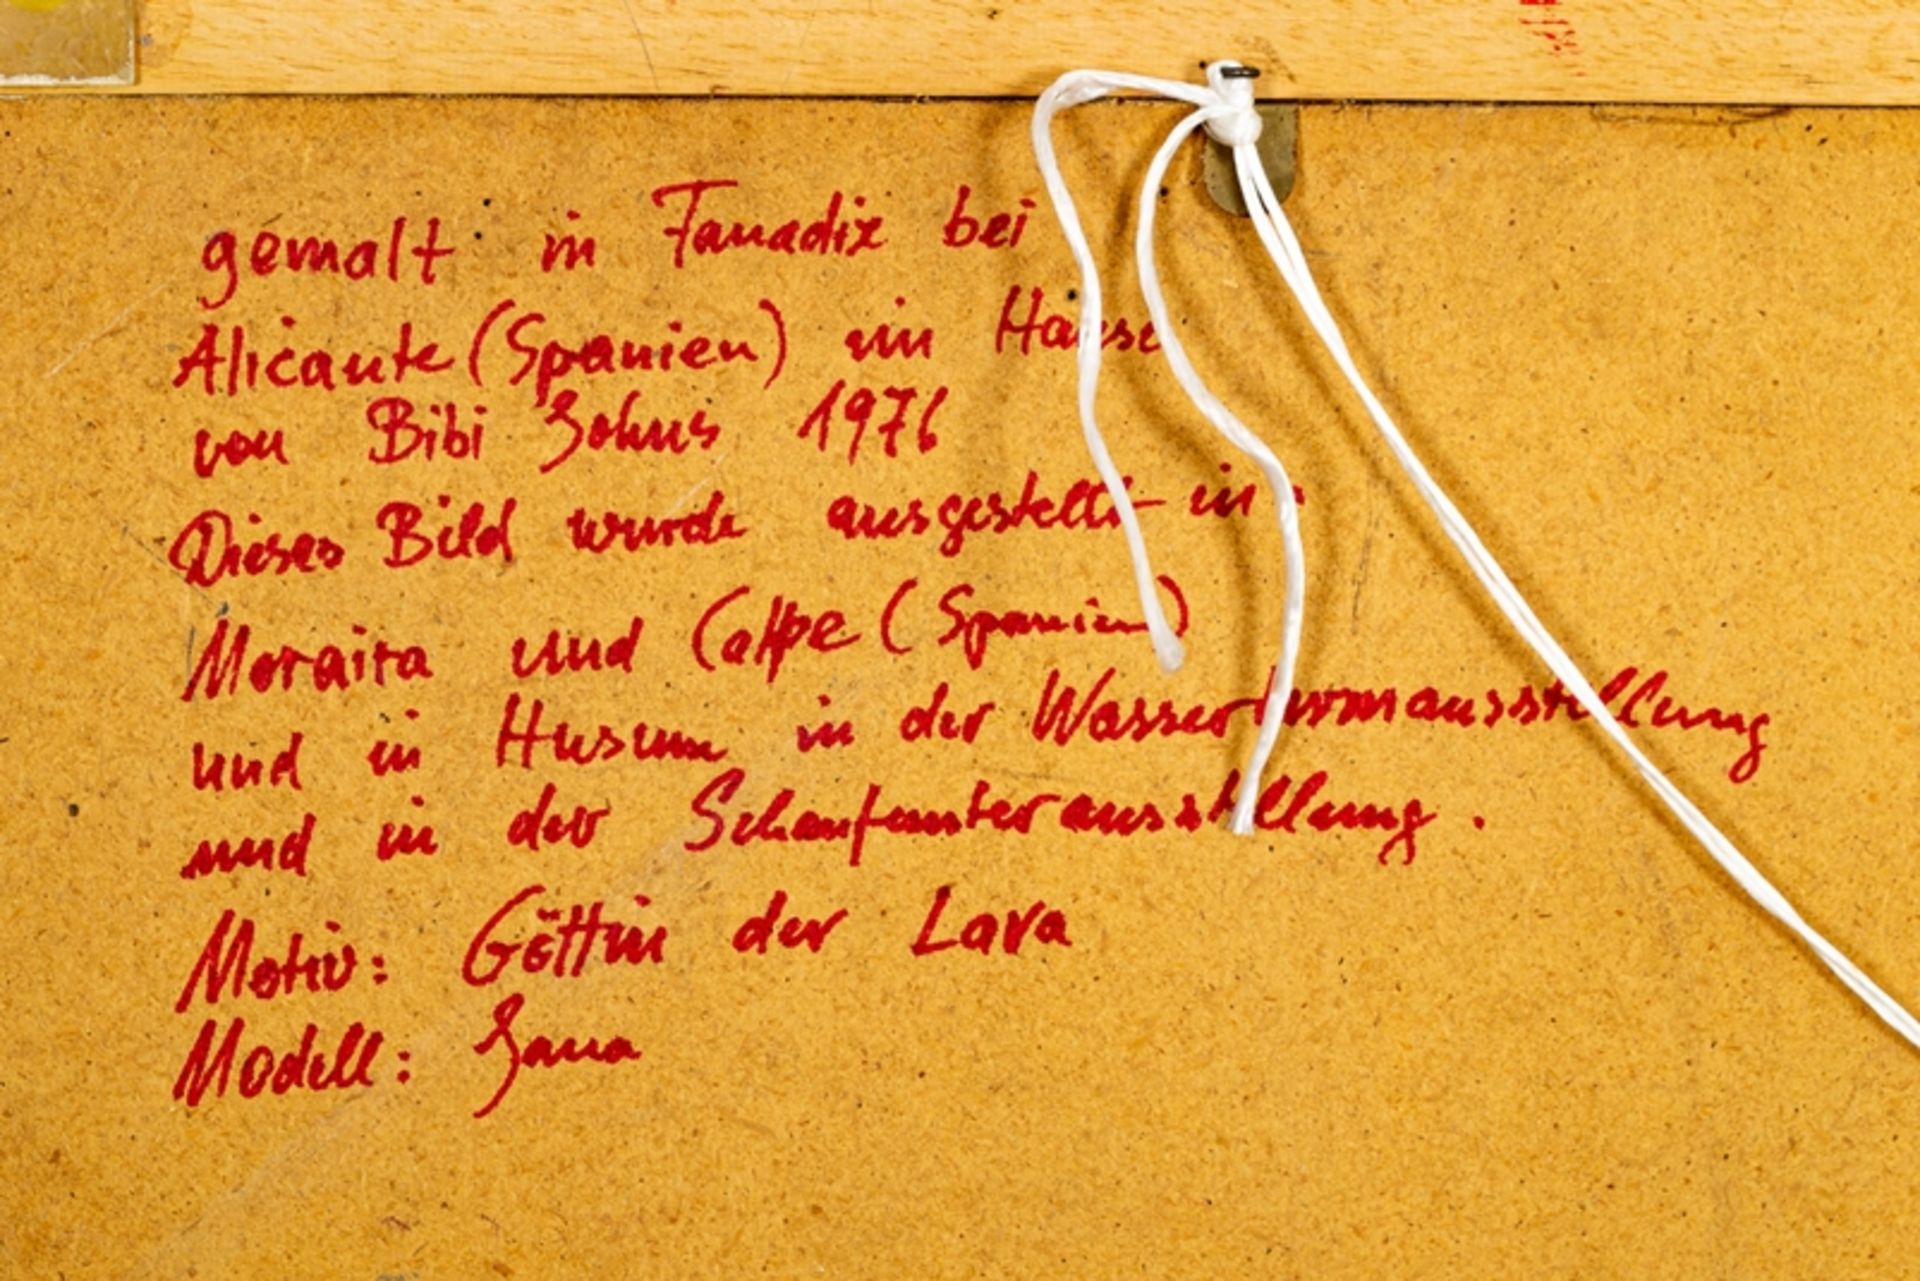 gemalt in Fanadix bei
Alicante (Spanien) im Hause
von Bibi Johns 1976
Dieses Bild wurde ausgestellt in:
Moraira und Calpe (Spanien)
und in Husum in der Wasserturmausstellung
und in der Schaufensterausstellung.
Motiv: Göttin der Lava
Modell: Jana